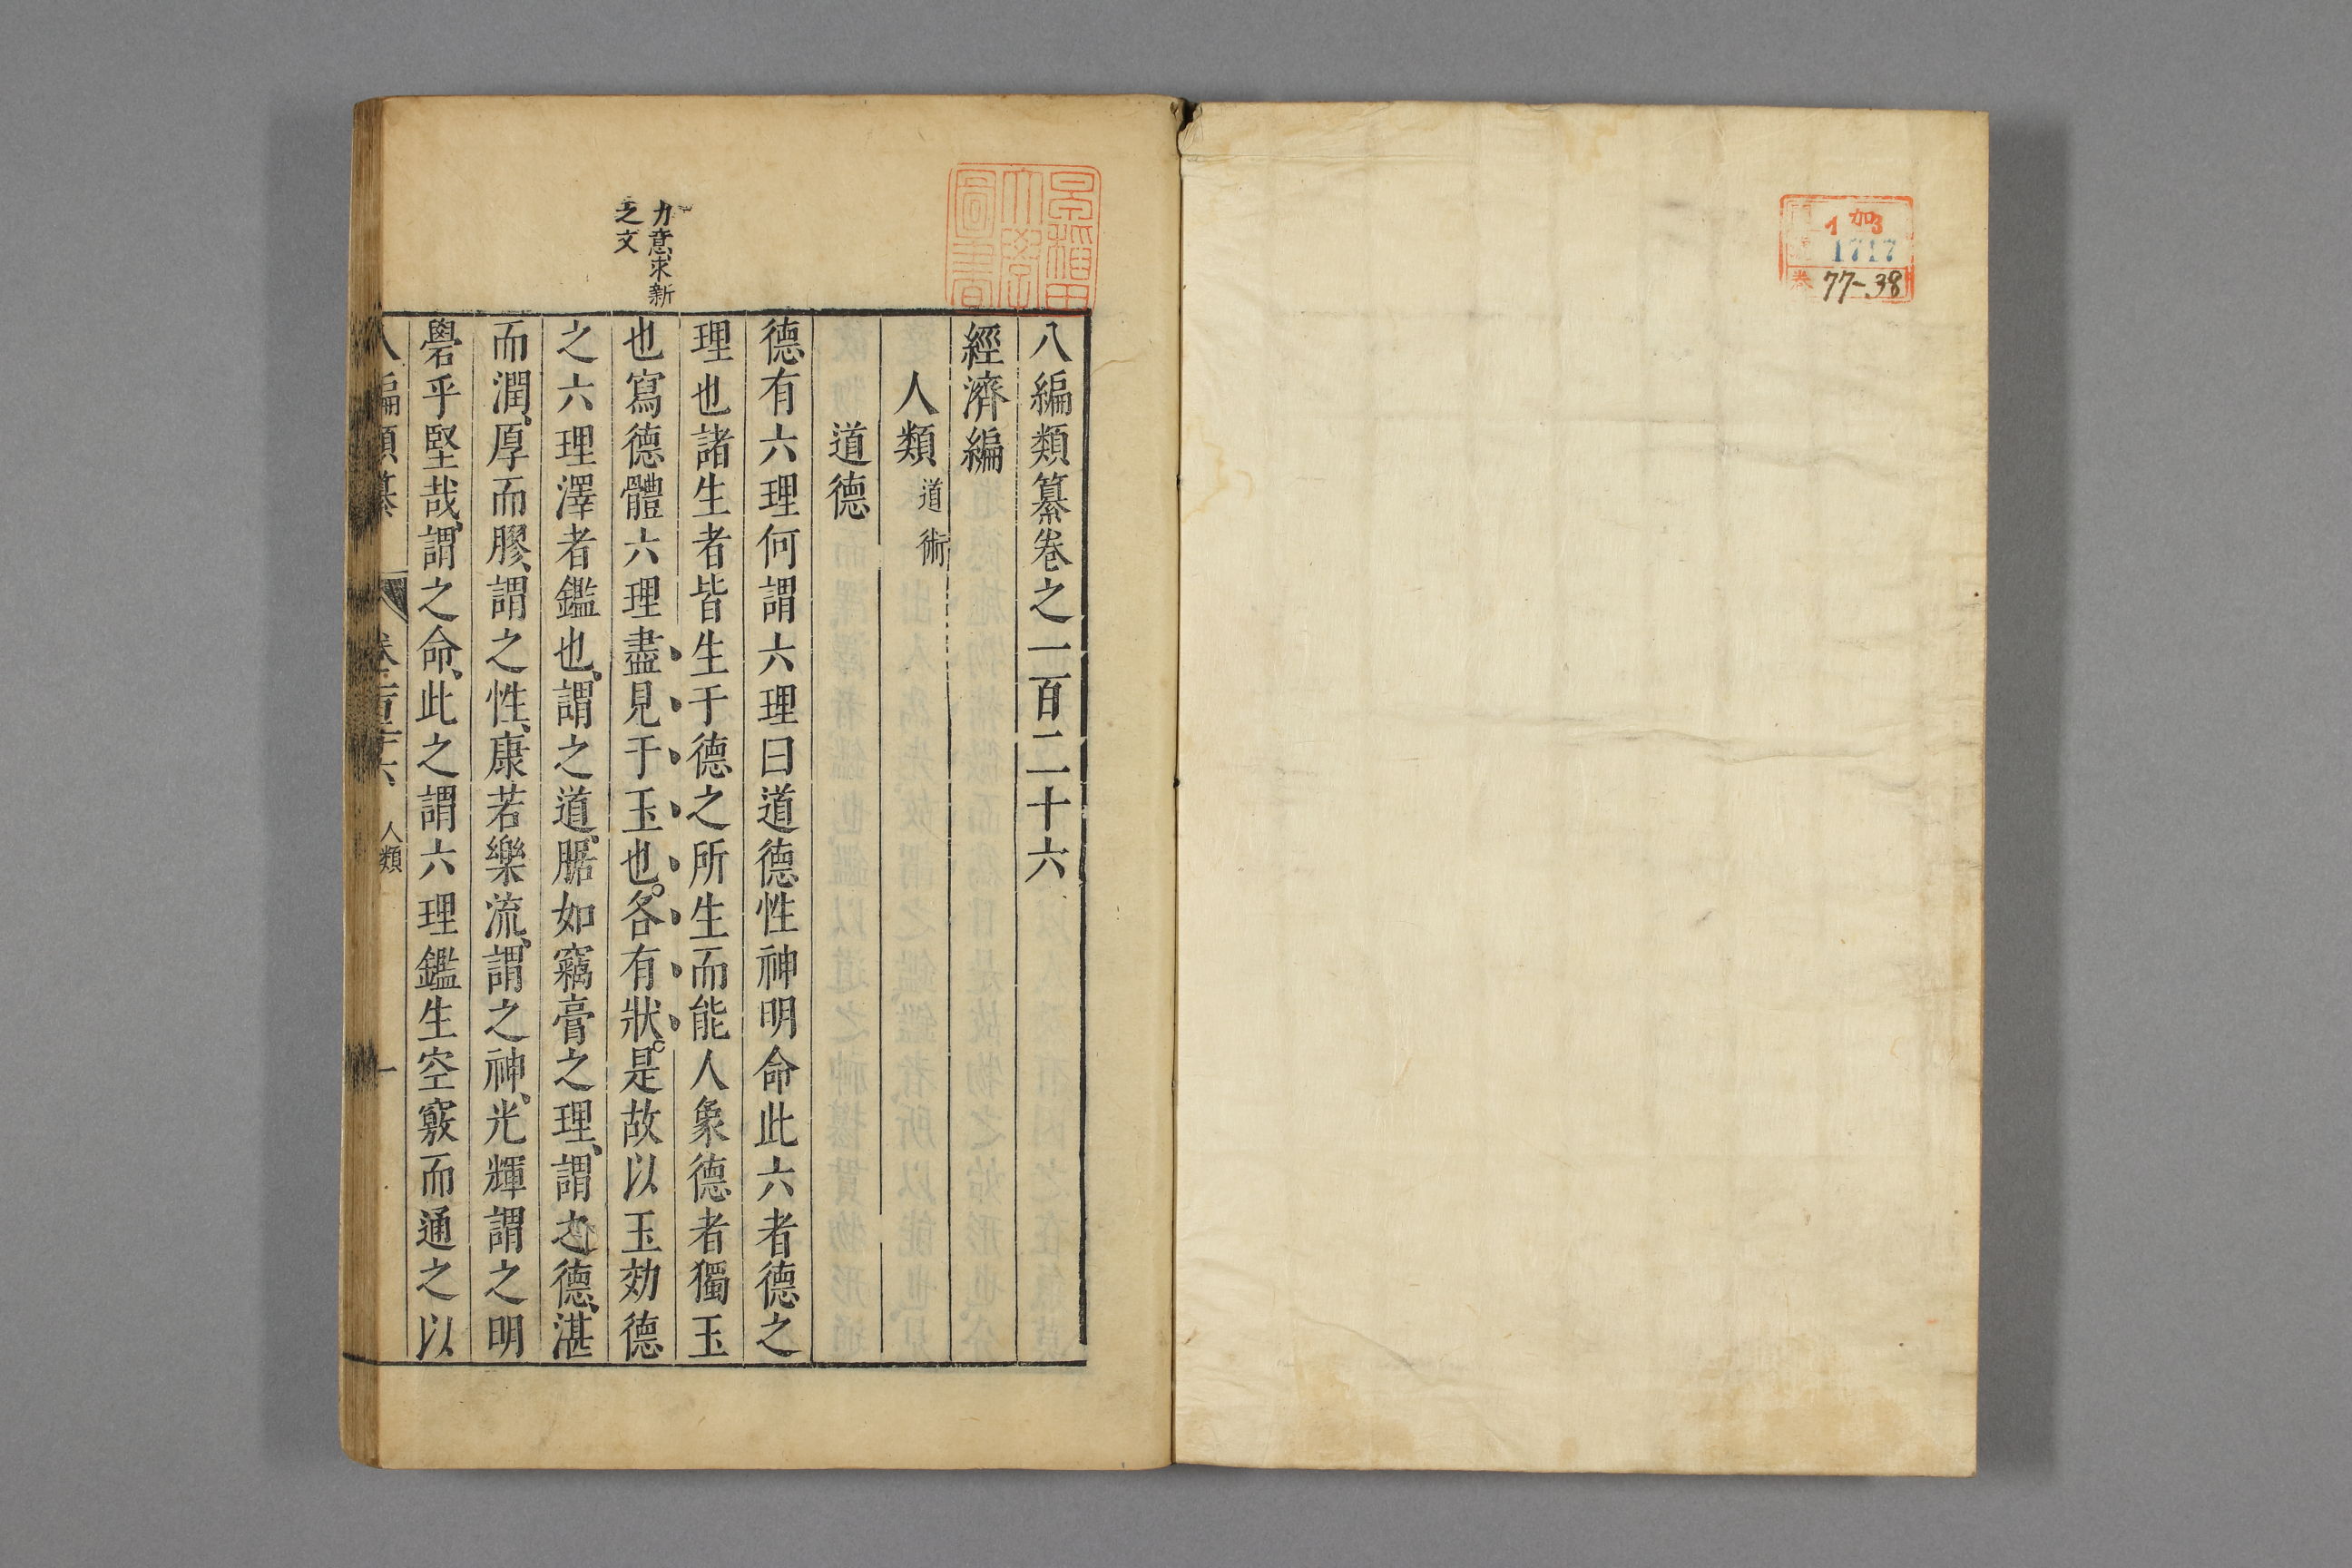 イ 加3
1717
卷 77-38
早稲田
大學
圖書
力意求新
之文
八編類纂卷之一百二十六
經濟編
人類 道術
道德
德有六理何謂六理曰道德性神明命此六者德之
理也諸生者皆生于德之所生而能人象德者獨玉
也寫德體六理盡見于玉也。各有狀。是故以玉効德
之六理澤者鑑也、謂之道、腒如竊膏之理、謂之德、湛
而潤、厚而膠、謂之性、康若樂流、謂之神、光輝謂之明
礐乎堅哉、謂之命、此之謂六理鑑生空竅而通之以
八編類纂 卷一百二十六 人類 一